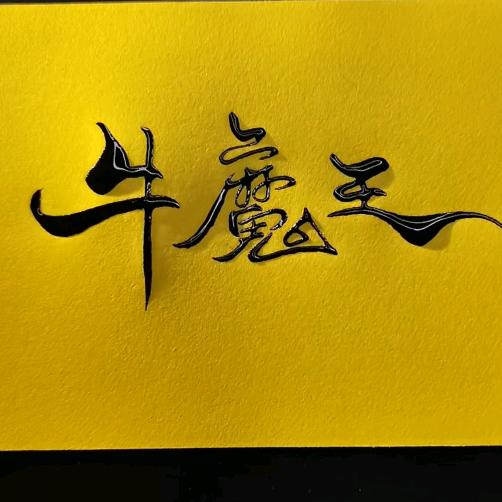 牛魔王